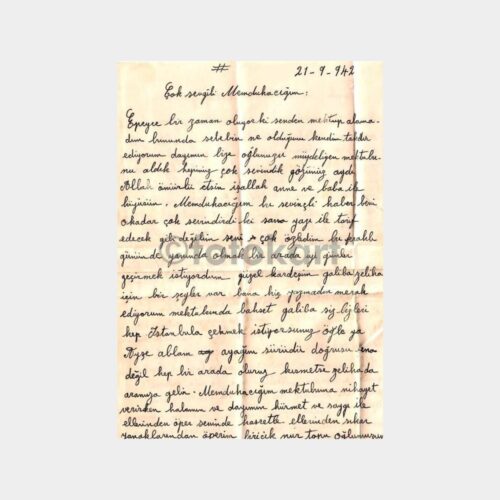 #
21-9-942
Çok sevgili Memduhacığım:
Epeyce bir zaman oluyor ki senden mektup alama-
dım bununda sebebin ne olduğunu kendim takdir
ediyorum dayımın bize oğlunuzu müjdeliyen mektubu-
nu aldık hepimiz çok sevindik gözünüz aydı
Allah ömürlü etsin işallah anne ve baba ile
büyüsün. Memduhacığım bu sevinçli haber beni
okadar çok sevindirdi ki sana yazı ile tarif
edecek değilim seni çok özledim bu
gününde yanında olmak bir arada iyi günler
geçirmek istiyordum güzel kardeşim galiba zeliha
için bir şeyler var bana hiç yazmadın merak
ediyorum mektubunda bahset galiba siz bizleri
hep İstanbula çekmek istiyorsunuz öğle ya
Ayşe ablam ayağını sürüdü doğrusu fena
değil hep bir arada oluruz kısmetse zelihada
aramıza gelir. Memduhacığım mektubuma nihayet
verirken halamın ve dayımın hürmet ve saygı ile
ellerinden öper seninde hasretle ellerinden sıkar
yanaklarından öperim biricik nur topu oğlumuzun
©fotokart